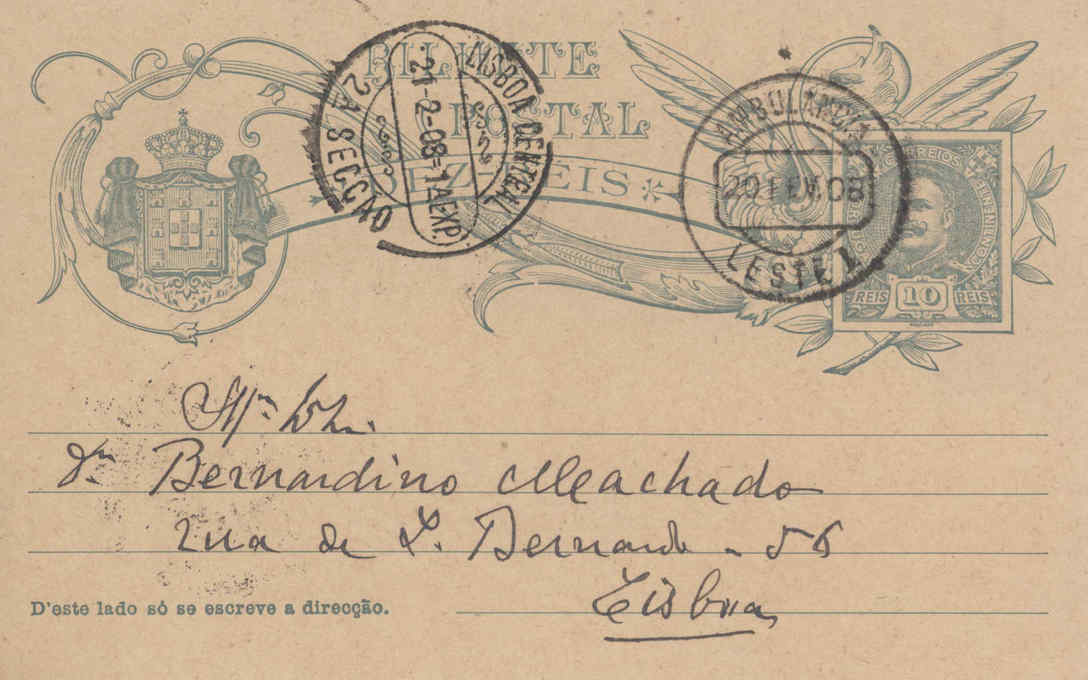 BILHETE
POSTAL
DEZ REIS
LISBOA CENTRAL
21-2-08=1A(EXP.)
2A SECCÃO
AMBULANCIA
20 FEV. 08
LESTE I
CORREIOS
REIS 10 REIS
Dr. Bernardino Machado
Rua de S. Bernardo - 56
Lisboa
D'este lado só se escreve a direcção.